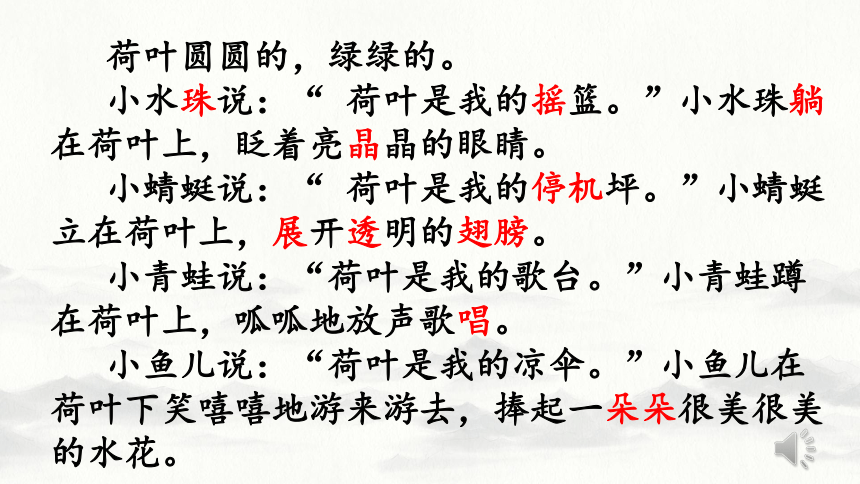 荷叶圆圆的，绿绿的。
小水珠说：“ 荷叶是我的摇篮。”小水珠躺
在荷叶上，眨着亮晶晶的眼睛。
小蜻蜓说：“ 荷叶是我的停机坪。”小蜻蜓
立在荷叶上，展开透明的翅膀。
小青蛙说：“荷叶是我的歌台。”小青蛙蹲
在荷叶上，呱呱地放声歌唱。
小鱼儿说：“荷叶是我的凉伞。”小鱼儿在
荷叶下笑嘻嘻地游来游去，捧起一朵朵很美很美
的水花。